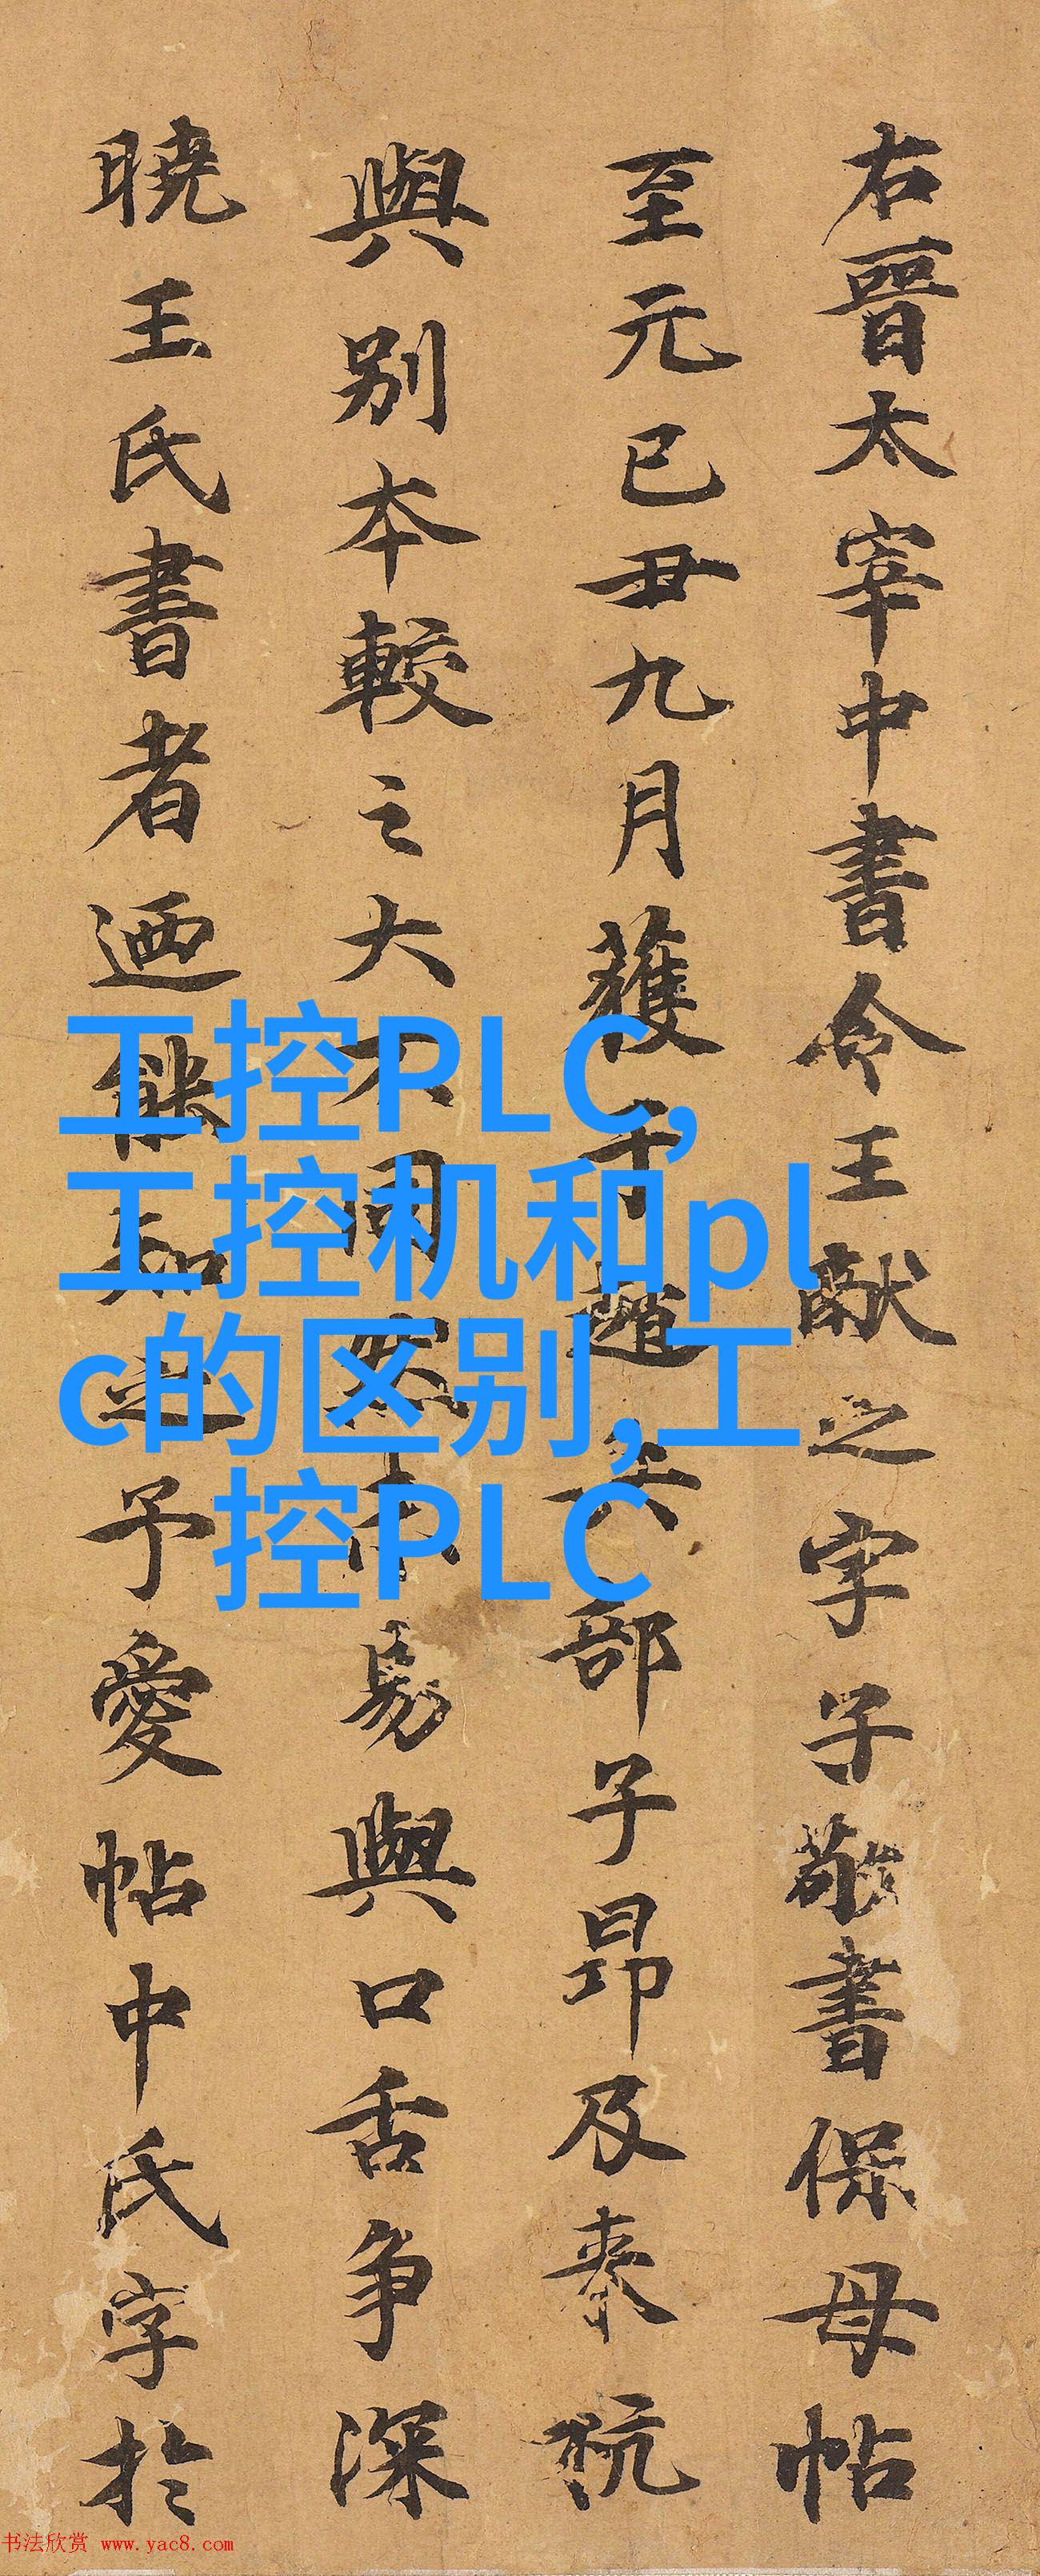 右晉太宰中書令王献之字子敬書保母帖
至元已丑九月獲于趙部子昂及来杭
與别本較之大不同然未易與口舌争深
曉王氏書者迺能知之予愛帖中氏字於
工控PLC,
工控机和pl
c的区别,工
控PLC
书法欣赏 www.yac8.com